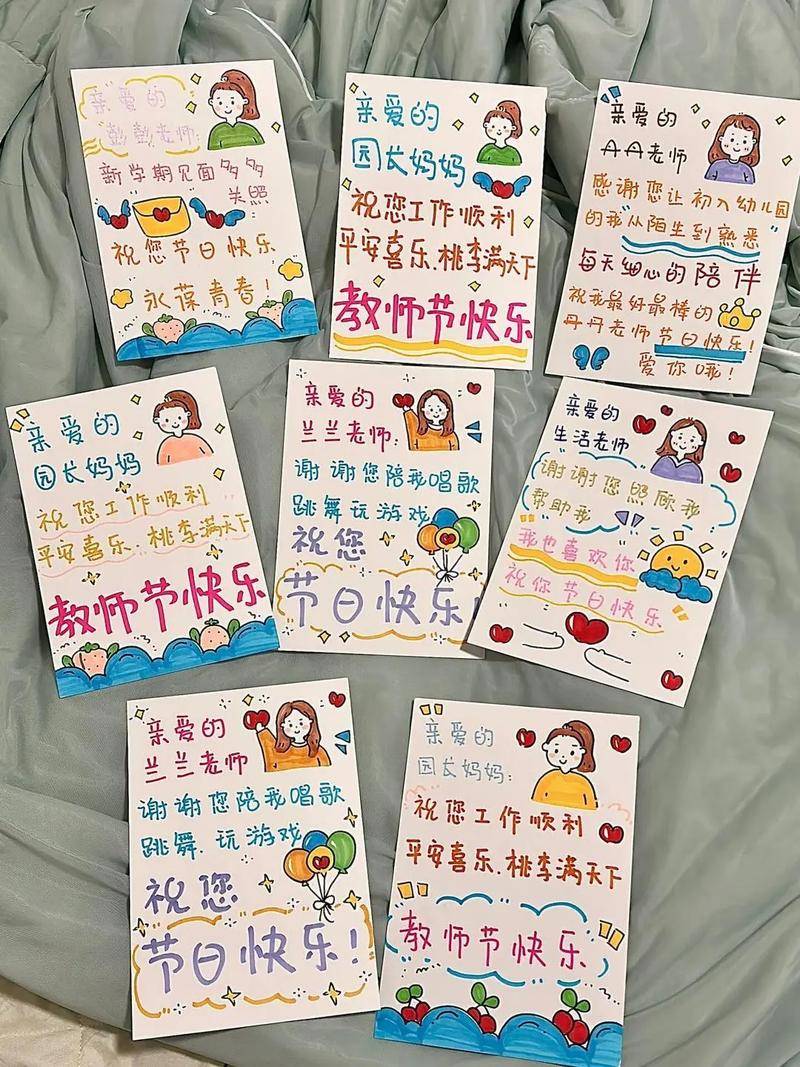 亲爱的
彭彭老师:
新学期见面多多
关照
祝您节日快乐
永葆青春!
亲爱的
园长妈妈
祝您工作顺利
平安喜乐、桃李满天下
教师节快乐
亲爱的
丹丹老师
感谢您让初入幼儿园
的我“从陌生到熟悉
每天细心的陪伴
祝我最好最棒的
丹丹老师节日快乐!
爱你哦!
亲爱的
园长妈妈
祝您工作顺利
平安喜乐、桃李满天下
教师节快乐
亲爱的
兰兰老师:
谢谢您陪我唱歌
跳舞玩游戏
祝您
节日快乐!
亲爱的
生活老师
谢谢您照顾我
帮助我
我也喜欢你
祝你节日快乐
亲爱的
兰兰老师
谢谢您陪我唱歌
跳舞、玩游戏
祝您
节日快乐!
亲爱的
园长妈妈:
祝您工作顺利
平安喜乐、桃李满天下
教师节快乐